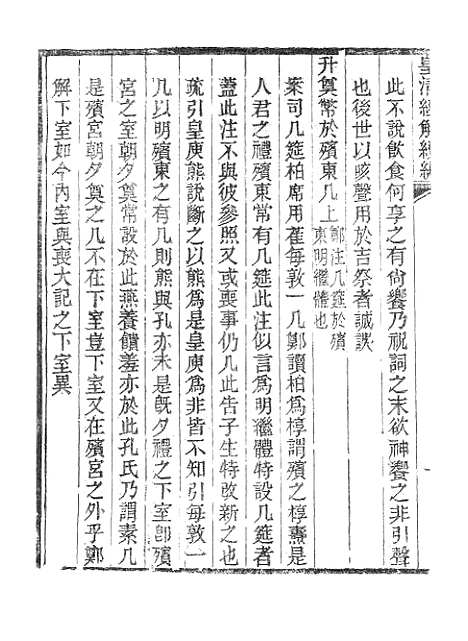 皇清經解續編
此不說飲食何享之有尚饗乃祝詞之末欲神饗之非引聲
也後世以咳聲用於吉祭者誠誤
升奠幣於殯東几上鄭注几筵於殯
東明繼體也
案司几筵柏席用萑每敦一几鄭讀柏爲椁謂殯之椁燾是
人君之禮殯東常有几筵此注似言爲明繼體特設几筵者
蓋此注不與彼參照又或喪事仍几此告子生特改新之也
疏引皇庾熊說斷之以熊爲是皇庾爲非皆不知引每敦一
几以明殯東之有几則熊與孔亦未是旣夕禮之下室卽殯
宮之室朝夕奠常設於此燕養饋羞亦於此孔氏乃謂素几
是殯宮朝夕奠之几不在下室豈下室又在殯宮之外乎鄭
解下室如今內室與喪大記之下室異